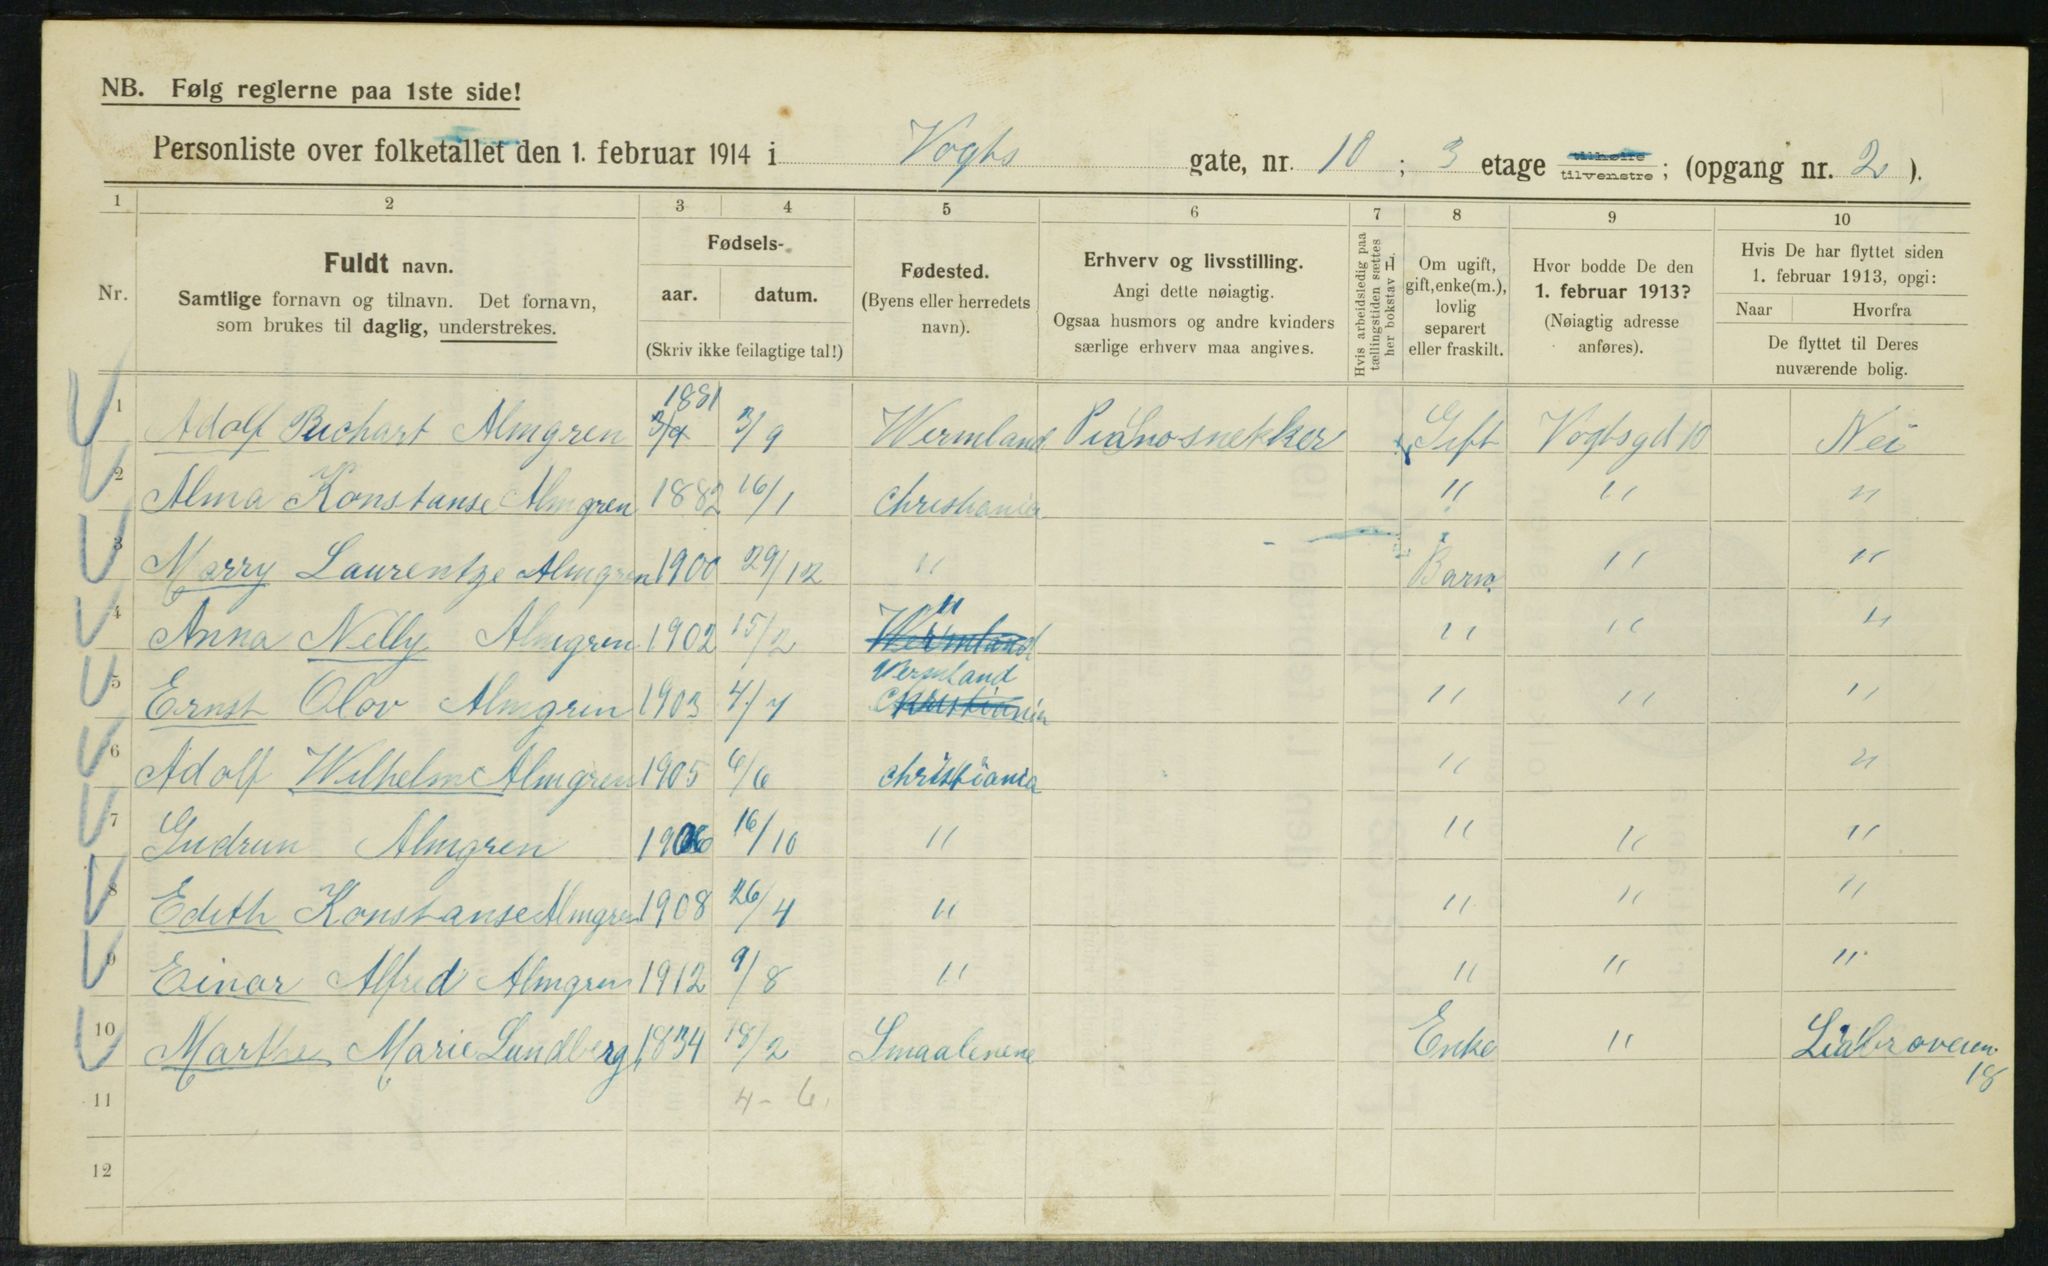 NB. Følg reglerne paa 1ste side!
Personliste over folketallet den 1. februar 1914 i Vogts gate, nr. 10 ; 3 etage tilhøire tilvenstre ; (opgang nr. 2 ).
1 2 3 4 5 6 7 8 9 10
Nr.
Fuldt navn.
Samtlige fornavn og tilnavn. Det fornavn,
som brukes til daglig, understrekes.
Fødsels-
aar. datum.
(Skriv ikke feilagtige tal!)
Fødested.
(Byens eller herredets
navn).
Erhverv og livsstilling.
Angi dette nøiagtig.
Ogsaa husmors og andre kvinders
særlige erhverv maa angives.
Hvis arbeidsledig paa
tællingstiden sættes
her bokstav L.
Om ugift,
gift, enke(m.),
lovlig
separert
eller fraskilt.
Hvor bodde De den
1. februar 1913?
(Nøiagtig adresse
anføres).
Hvis De har flyttet siden
1. februar 1913, opgi:
Naar Hvorfra
De flyttet til Deres
nuværende bolig.
1 Adolf Richart Almgren 3/9 1881 3/9 Wermland Pianosnekker Gift Vogtsgd 10 Nei
2 Alma Konstanse Almgren 1882 16/1 Christiania " " "
3 Marry Laurentze Almgren 1900 29/12 " Barn " "
4 Anna Nelly Almgren 1902 15/2 Wermland " " " "
5 Ernst Olov Almgren 1903 4/7 Vermland Christiania " " "
6 Adolf Wilhelm Almgren 1905 6/6 Christiania " "
7 Gudrun Almgren 1906 16/10 " " " "
8 Edith Konstanse Almgren 1908 26/4 " " " "
9 Einar Alfred Almgren 1912 9/8 " " " "
10 Marthe Marie Lundberg 1834 18/2 Smaalenene Enke " Liabroveien 18
11 4-6.
12